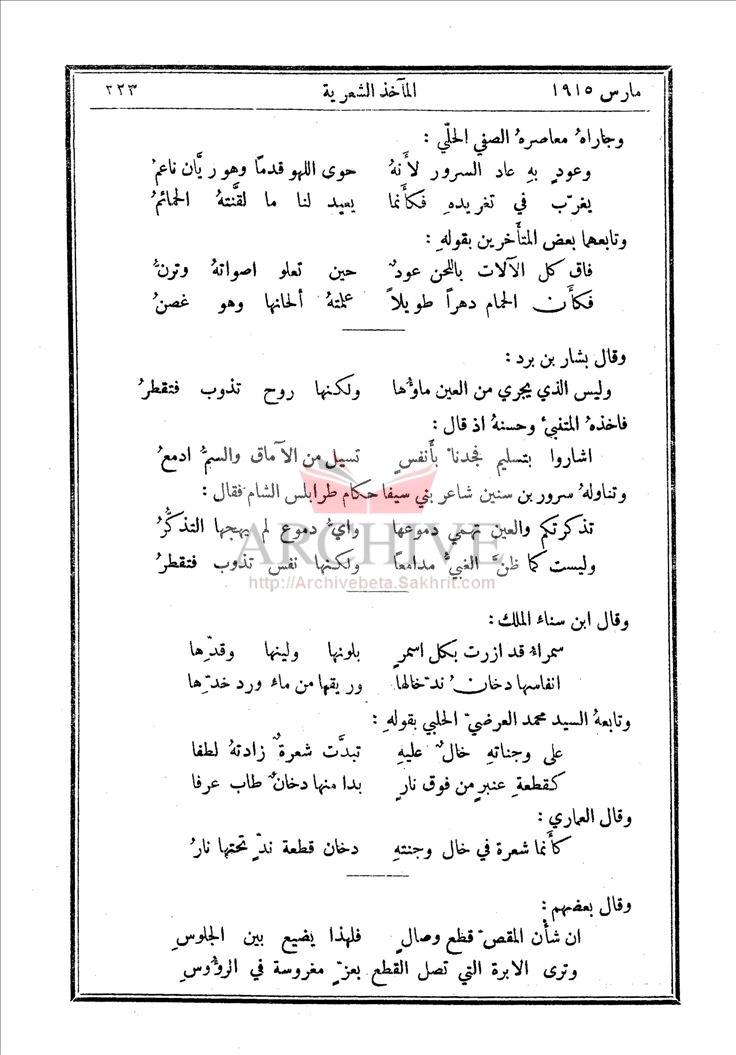 مارس ١٩١٥ المآخذ الشعرية ٢٢٣
وجاراهُ معاصرهُ الصفي الحلّي :
وعودٍ بهِ عاد السرور لأَنهُ حوى اللهو قدمًا وهو ريَّان ناعمُ
يغرّب في تغريدهِ فكأَنما يعيد لنا ما لقَّنتهُ الحمائمُ
وتابعهما بعض المتأَخرين بقولهِ :
فاق كل الآلات باللحن عودٌ حين تعلو اصواتهُ وترنُّ
فكأَن الحمام دهراً طويلاً علمتهُ ألحانها وهو غصنُ
وقال بشار بن برد :
وليس الذي يجري من العين ماؤُها ولكنها روح تذوب فتقطرُ
فاخذهُ المتنبي وحسنهُ اذ قال :
اشاروا بتسليم فجدنا بأَنفسٍ تسيل من الآماق والسمُّ ادمعُ
وتناولهُ سرور بن سنين شاعر بني سيفا حكام طرابلس الشام فقال :
تذكرتكم والعين تهمي دموعها وايُّ دموع لم يهجها التذكُّرُ
وليست كما ظنَّ الغبيُّ مدامعًا ولكنها نفس تذوب فتقطرُ
ARCHIVE
http://Archivebeta.Sakhrit.com
وقال ابن سناء الملك :
سمراءُ قد ازرت بكل اسمرٍ بلونها ولينها وقدّها
انفاسها دخانُ ندّ خالها وريقها من ماء ورد خدّها
وتابعهُ السيد محمد العرضيّ الحلبي بقولهِ :
على وجناتهِ خالٌ عليهِ تبدَّت شعرةٌ زادتهُ لطفا
كقطعةِ عنبرٍ من فوق نارٍ بدا منها دخانٌ طاب عرفا
وقال العماري :
كأَنما شعرة في خال وجنتهِ دخان قطعة ندٍّ تحتها نارُ
وقال بعضهم :
ان شأْن المقصّ قطع وصالٍ فلهذا يضيع بين الجلوسِ
وترى الابرة التي تصل القطع بعزٍّ مغروسة في الروُوسِ